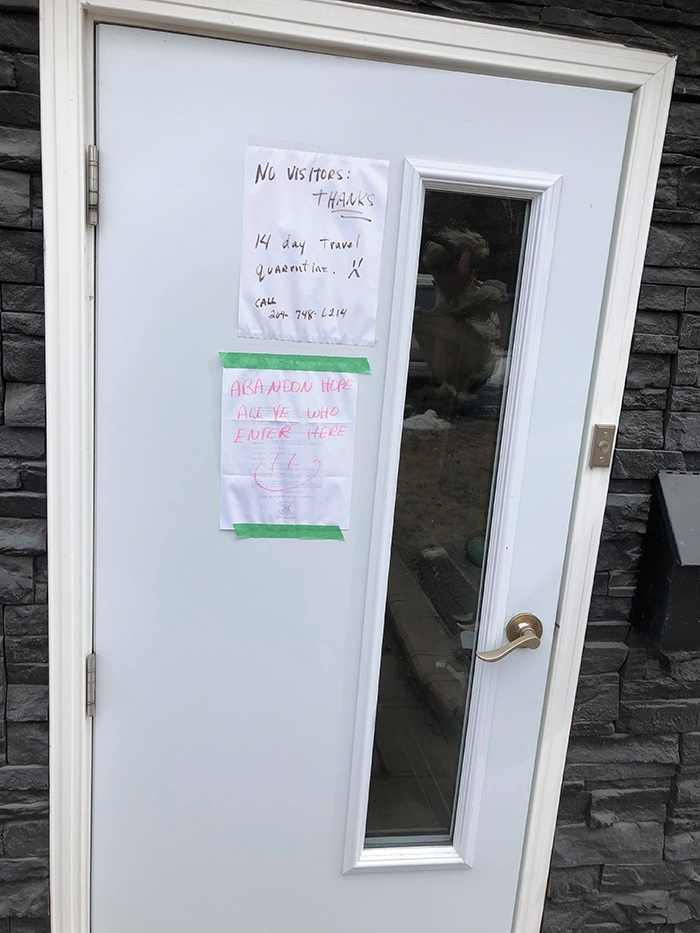 NO VISITORS:
THANKS
14 day Travel
quarentine.
CALL
204-748-6114
ABANDON HOPE
ALL YE WHO
ENTER HERE